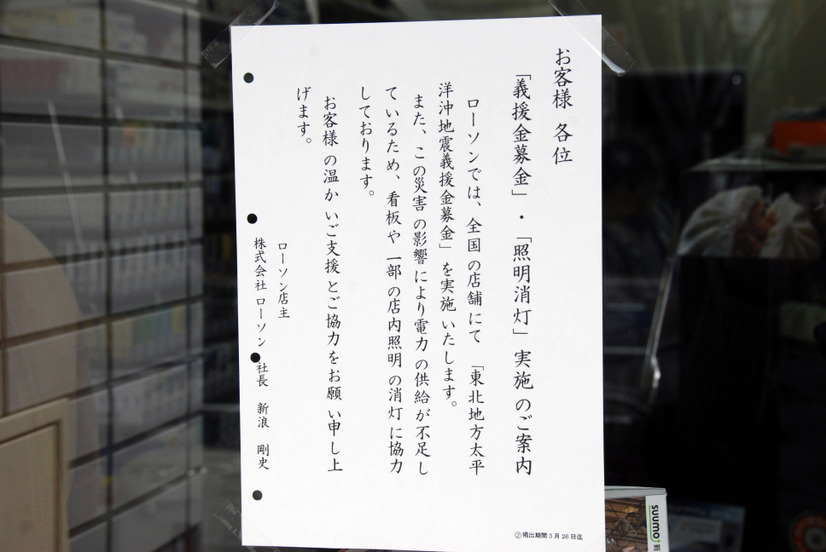 お客様 各位
「義援金募金」・「照明消灯」実施のご案内
ローソンでは、全国の店舗にて「東北地方太平
洋沖地震義援金募金」を実施いたします。
また、この災害の影響により電力の供給が不足し
ているため、看板や一部の店内照明の消灯に協力
しております。
お客様の温かいご支援とご協力をお願い申し上
げます。
ローソン店主
株式会社ローソン 社長 新浪 剛史
②掲出期間3月26日迄
suumo